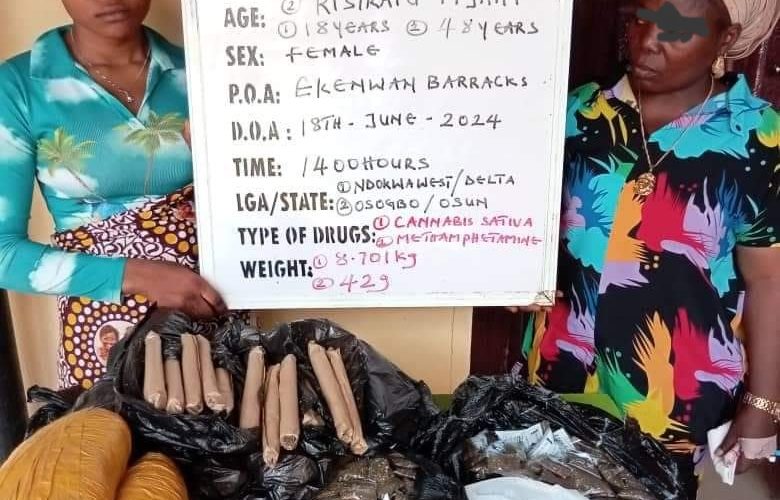 AGE: ① 18 YEARS ② 48 YEARS
SEX: FEMALE
P.O.A: EKENWAN BARRACKS
D.O.A: 18TH - JUNE - 2024
TIME: 1400HOURS
LGA/STATE: ① NDOKWA WEST/DELTA
② OSOGBO/OSUN
TYPE OF DRUGS: ① CANNABIS SATIVA
② METHAMPHETAMINE
WEIGHT: ① 8.701kg
② 42g